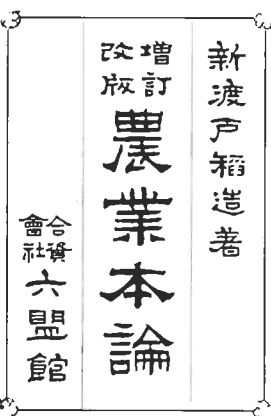 新渡戸稻造著
增訂
改版
農業本論
合資
會社
六盟館